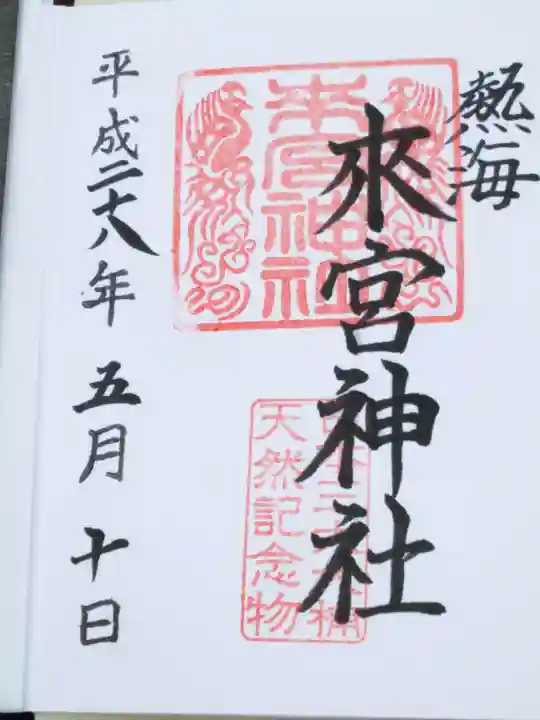 熱海
來宮神社
来宮神社
天然記念物
平成二十八年 五月 十日